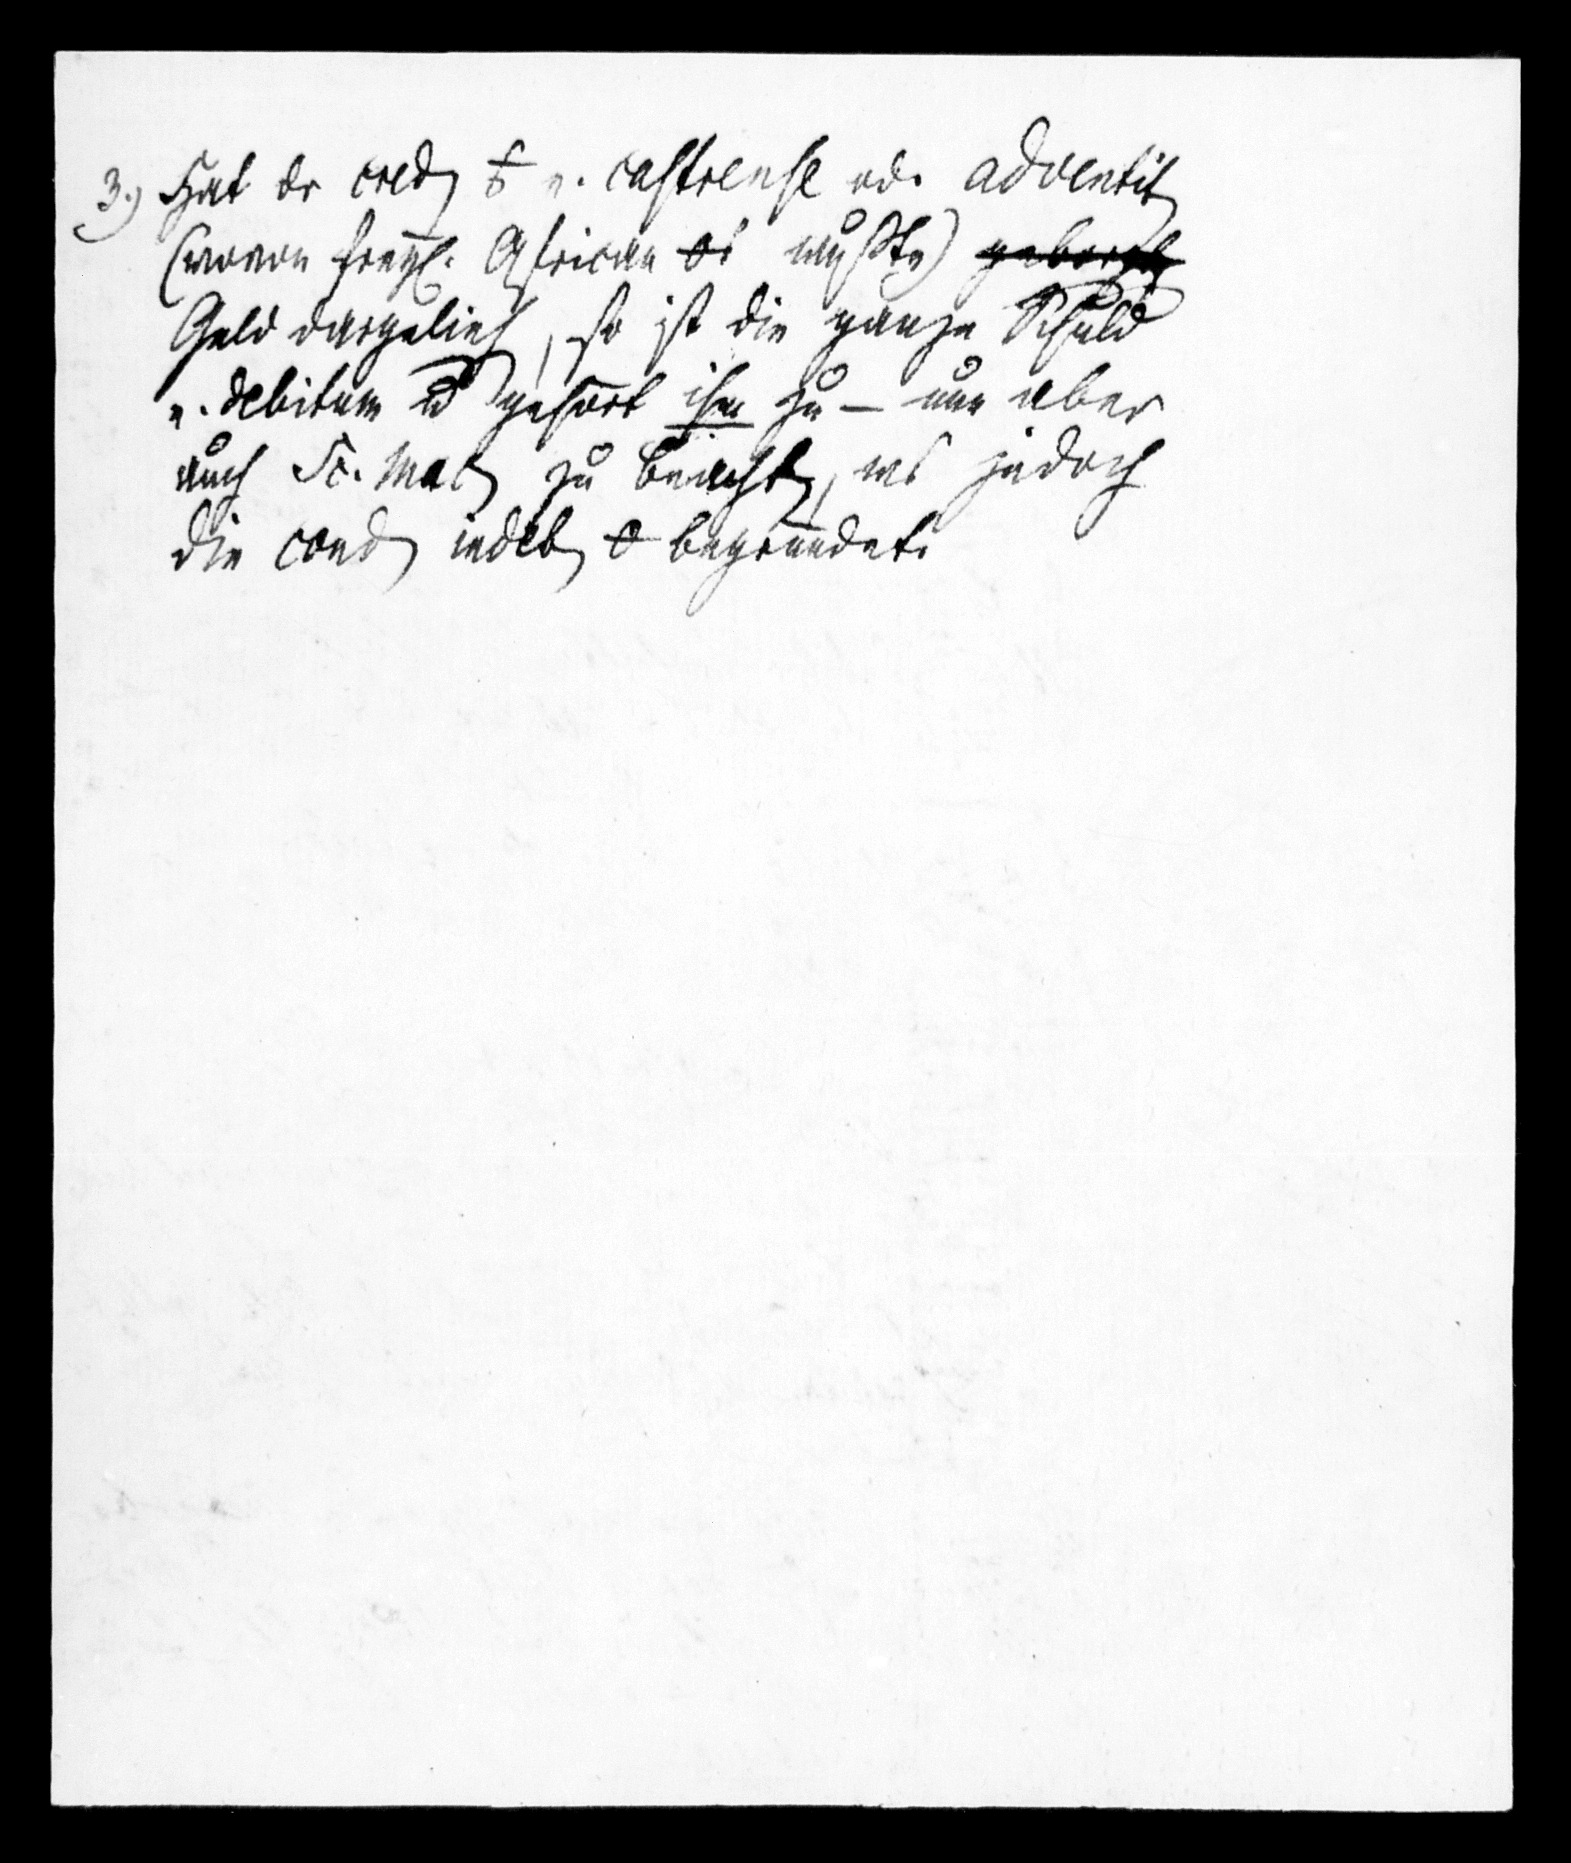 3.) Hat dr cred v. castrense od. adventit
(wovon freyl. African wußte) geborgt
Geld dargelieh, so ist die ganze Schuld
debitum u gehört ihm zu – nun aber
auch Sc. Mac zu beacht, jedoch
die cond indeb begründet.